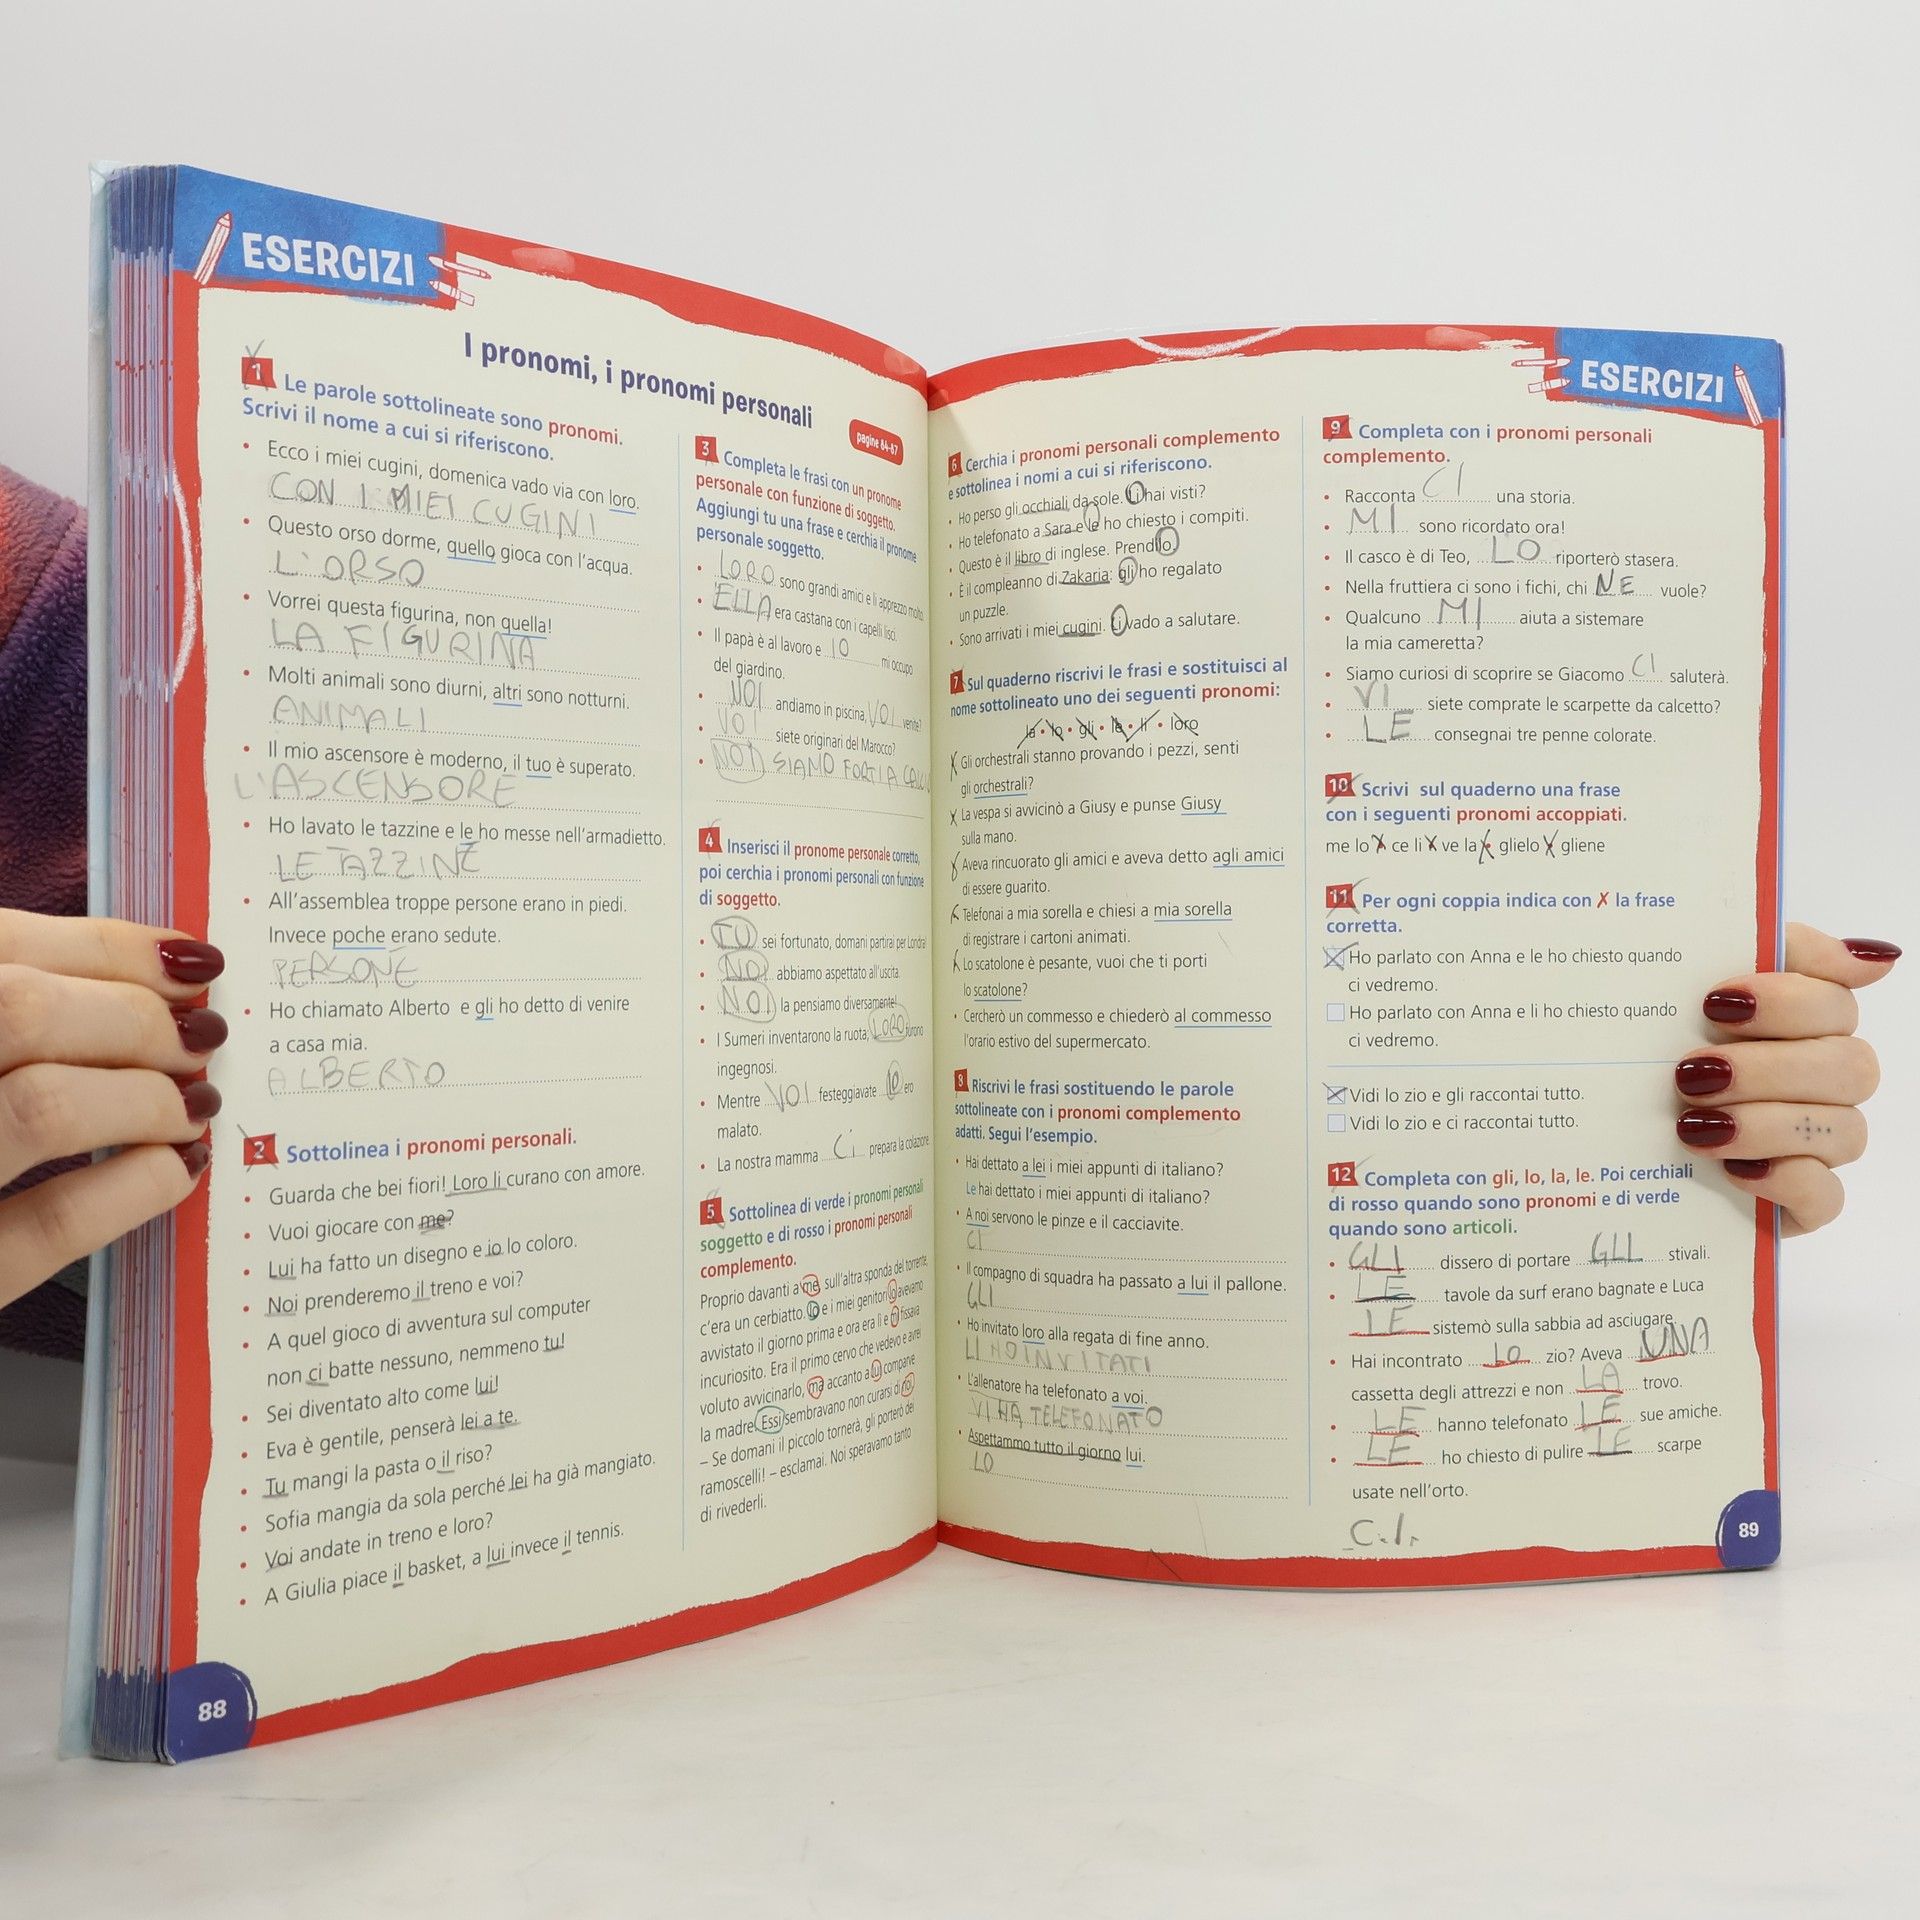 ESERCIZI
I pronomi, i pronomi personali
pagine 84-87
1 Le parole sottolineate sono pronomi.
Scrivi il nome a cui si riferiscono.
• Ecco i miei cugini, domenica vado via con loro.
CON I MIEI CUGINI
• Questo orso dorme, quello gioca con l'acqua.
L'ORSO
• Vorrei questa figurina, non quella!
LA FIGURINA
• Molti animali sono diurni, altri sono notturni.
ANIMALI
• Il mio ascensore è moderno, il tuo è superato.
L'ASCENSORE
• Ho lavato le tazzine e le ho messe nell'armadietto.
LE TAZZINE
• All'assemblea troppe persone erano in piedi.
Invece poche erano sedute.
PERSONE
• Ho chiamato Alberto e gli ho detto di venire
a casa mia.
ALBERTO
2 Sottolinea i pronomi personali.
• Guarda che bei fiori! Loro li curano con amore.
• Vuoi giocare con me?
• Lui ha fatto un disegno e io lo coloro.
• Noi prenderemo il treno e voi?
• A quel gioco di avventura sul computer
non ci batte nessuno, nemmeno tu!
• Sei diventato alto come lui!
• Eva è gentile, penserà lei a te.
• Tu mangi la pasta o il riso?
• Sofia mangia da sola perché lei ha già mangiato.
• Voi andate in treno e loro?
• A Giulia piace il basket, a lui invece il tennis.
88
3 Completa le frasi con un pronome
personale con funzione di soggetto.
Aggiungi tu una frase e cerchia il pronome
personale soggetto.
• LORO sono grandi amici e li apprezzo molto.
• ELLA era castana con i capelli lisci.
• Il papà è al lavoro e IO mi occupo
del giardino.
• NOI andiamo in piscina, VOI venite?
• VOI siete originari del Marocco?
• NOI SIAMO FORTI A
4 Inserisci il pronome personale corretto,
poi cerchia i pronomi personali con funzione
di soggetto.
• TU sei fortunato, domani partirai per Londra!
• NOI abbiamo aspettato all'uscita.
• NOI la pensiamo diversamente!
• I Sumeri inventarono la ruota; LORO furono
ingegnosi.
• Mentre VOI festeggiavate IO ero
malato.
• La nostra mamma Ci prepara la colazione.
5 Sottolinea di verde i pronomi personali
soggetto e di rosso i pronomi personali
complemento.
Proprio davanti a me, sull'altra sponda del torrente,
c'era un cerbiatto. Io e i miei genitori lo avevamo
avvistato il giorno prima e ora era lì e mi fissava
incuriosito. Era il primo cervo che vedevo e avrei
voluto avvicinarlo, ma accanto a lui comparve
la madre. Essi sembravano non curarsi di noi.
– Se domani il piccolo tornerà, gli porterò dei
ramoscelli! – esclamai. Noi speravamo tanto
di rivederli.
ESERCIZI
6 Cerchia i pronomi personali complemento
e sottolinea i nomi a cui si riferiscono.
• Ho perso gli occhiali da sole. Li hai visti?
• Ho telefonato a Sara e le ho chiesto i compiti.
• Questo è il libro di inglese. Prendilo.
• È il compleanno di Zakaria: gli ho regalato
un puzzle.
• Sono arrivati i miei cugini. Li vado a salutare.
7 Sul quaderno riscrivi le frasi e sostituisci al
nome sottolineato uno dei seguenti pronomi:
la • lo • gli • le • li • loro
Gli orchestrali stanno provando i pezzi, senti
gli orchestrali?
La vespa si avvicinò a Giusy e punse Giusy
sulla mano.
Aveva rincuorato gli amici e aveva detto agli amici
di essere guarito.
Telefonai a mia sorella e chiesi a mia sorella
di registrare i cartoni animati.
Lo scatolone è pesante, vuoi che ti porti
lo scatolone?
• Cercherò un commesso e chiederò al commesso
l'orario estivo del supermercato.
8 Riscrivi le frasi sostituendo le parole
sottolineate con i pronomi complemento
adatti. Segui l'esempio.
• Hai dettato a lei i miei appunti di italiano?
Le hai dettato i miei appunti di italiano?
• A noi servono le pinze e il cacciavite.
CI
• Il compagno di squadra ha passato a lui il pallone.
GLI
• Ho invitato loro alla regata di fine anno.
LI HO INVITATI
• L'allenatore ha telefonato a voi.
VI HA TELEFONATO
• Aspettammo tutto il giorno lui.
LO
9 Completa con i pronomi personali
complemento.
• Racconta CI una storia.
• MI sono ricordato ora!
• Il casco è di Teo, LO riporterò stasera.
• Nella fruttiera ci sono i fichi, chi NE vuole?
• Qualcuno MI aiuta a sistemare
la mia cameretta?
• Siamo curiosi di scoprire se Giacomo CI saluterà.
• VI siete comprate le scarpette da calcetto?
• LE consegnai tre penne colorate.
10 Scrivi sul quaderno una frase
con i seguenti pronomi accoppiati.
me lo • ce li • ve la • glielo • gliene
11 Per ogni coppia indica con ✗ la frase
corretta.
Ho parlato con Anna e le ho chiesto quando
ci vedremo.
Ho parlato con Anna e li ho chiesto quando
ci vedremo.
Vidi lo zio e gli raccontai tutto.
Vidi lo zio e ci raccontai tutto.
12 Completa con gli, lo, la, le. Poi cerchiali
di rosso quando sono pronomi e di verde
quando sono articoli.
• GLI dissero di portare GLI stivali.
• LE tavole da surf erano bagnate e Luca
LE sistemò sulla sabbia ad asciugare.
• Hai incontrato LO zio? Aveva UNA
cassetta degli attrezzi e non LA trovo.
• LE hanno telefonato LE sue amiche.
• LE ho chiesto di pulire LE scarpe
usate nell'orto.
89